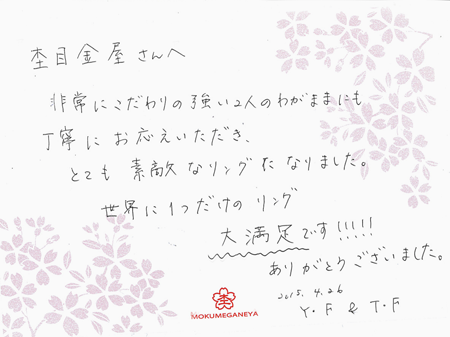 杢目金屋さんへ
非常にこだわりの強い2人のわがままにも
丁寧にお応えいただき、
とても素敵なリングになりました。
世界に1つだけのリング
大満足です!!!!!
ありがとうございました。
2015. 4. 26
Y・F & T・F
杢
MOKUMEGANEYA